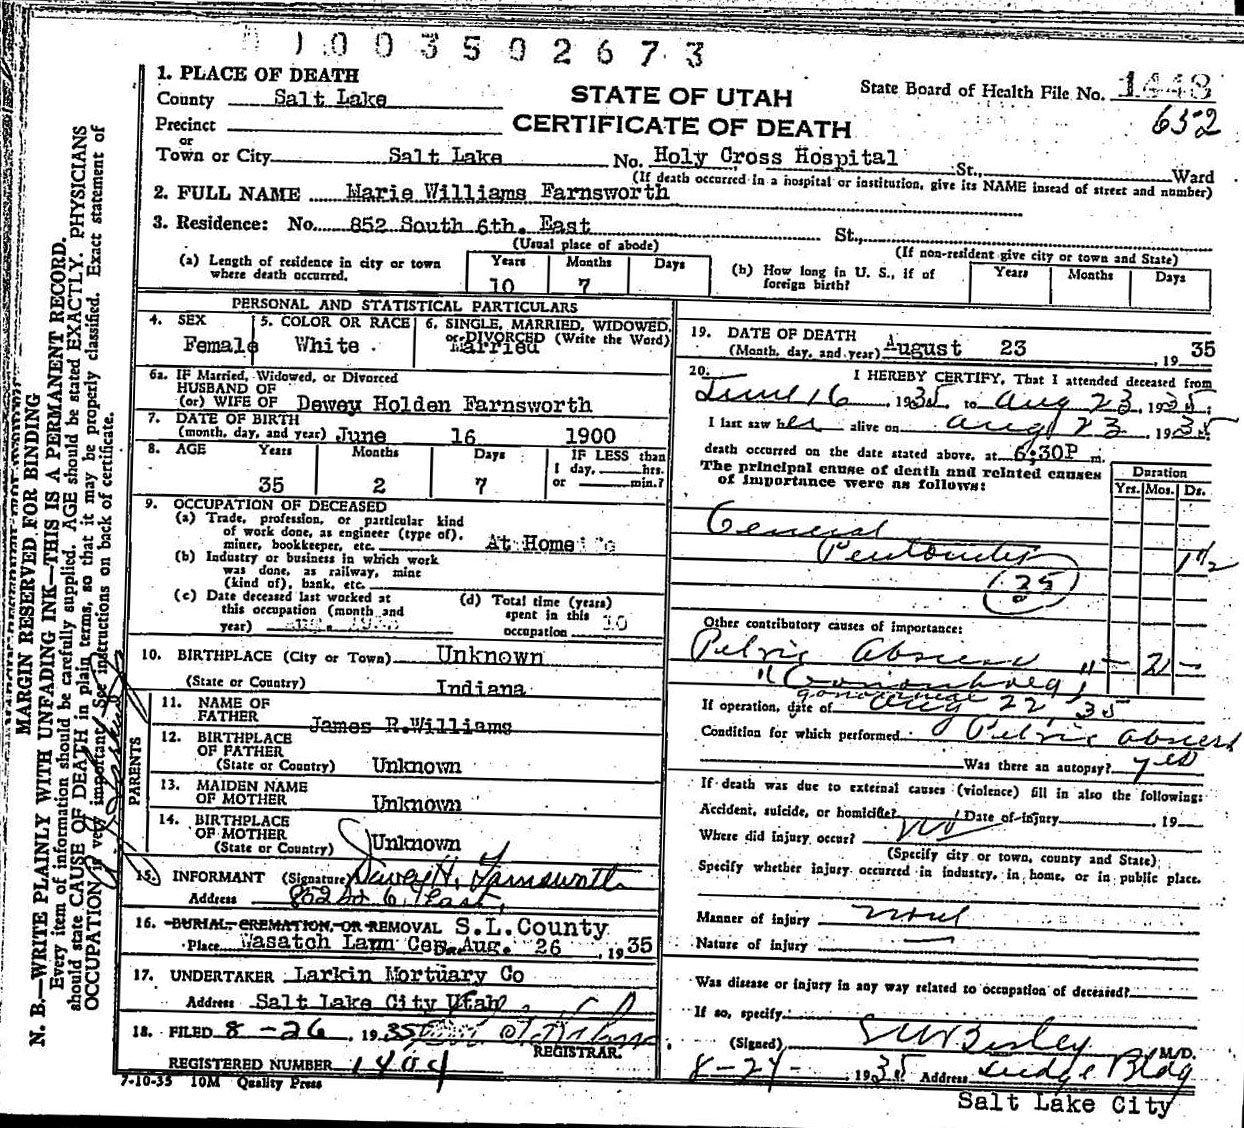 01003502673
1. PLACE OF DEATH
County Salt Lake
STATE OF UTAH
CERTIFICATE OF DEATH
State Board of Health File No. 1448
652
Precinct
or
Town or City Salt Lake No. Holy Cross Hospital St., Ward
(If death occurred in a hospital or institution, give its NAME insead of street and number)
2. FULL NAME Marie Williams Farnsworth
3. Residence: No. 852 South 6th. East St.,
(Usual place of abode) (If non-resident give city or town and State)
(a) Length of residence in city or town where death occurred. Years 10 Months 7 Days
(b) How long in U. S., if of foreign birth? Years Months Days
PERSONAL AND STATISTICAL PARTICULARS
4. SEX Female
5. COLOR OR RACE White
6. SINGLE, MARRIED, WIDOWED, or DIVORCED (Write the Word) Married
6a. IF Married, Widowed, or Divorced
HUSBAND OF
(or) WIFE OF Dewey Holden Farnsworth
7. DATE OF BIRTH
(month, day, and year) June 16 1900
8. AGE Years 35 Months 2 Days 7
IF LESS than
1 day, hrs.
or min.?
9. OCCUPATION OF DECEASED
(a) Trade, profession, or particular kind
of work done, as engineer (type of).
miner, bookkeeper, etc. At Home
(b) Industry or business in which work
was done, as railway, mine
(kind of), bank, etc.
(c) Date deceased last worked at
this occupation (month and
year)
(d) Total time (years)
spent in this
occupation 10
10. BIRTHPLACE (City or Town) Unknown
(State or Country) Indiana
PARENTS
11. NAME OF
FATHER James R. Williams
12. BIRTHPLACE
OF FATHER
(State or Country) Unknown
13. MAIDEN NAME
OF MOTHER Unknown
14. BIRTHPLACE
OF MOTHER
(State or Country) Unknown
15. INFORMANT (Signature) Dewey H. Farnsworth
Address 852 So 6 East,
16. BURIAL, CREMATION, OR REMOVAL S.L. County
Place Wasatch Lawn Cem. Aug. 26, 1935
17. UNDERTAKER Larkin Mortuary Co
Address Salt Lake City Utah
18. FILED 8-26, 1935
REGISTRAR.
REGISTERED NUMBER 1404
7-10-35 10M Quality Press
19. DATE OF DEATH
(Month, day, and year) August 23, 1935
20. I HEREBY CERTIFY, That I attended deceased from
June 16, 1935, to Aug 23, 1935;
I last saw her alive on Aug 23 1935
death occurred on the date stated above, at 6:30P m.
The principal cause of death and related causes
of importance were as follows:
Duration
Yrs. Mos. Ds.
General
Peritonitis 1 1/2
(25)
Other contributory causes of importance:
Pelvic Abscess " - 2 -
" Gonorrheal,
gonorrheal
If operation, date of Aug 22, 35
Condition for which performed Pelvic abscess
Was there an autopsy? yes
If death was due to external causes (violence) fill in also the following:
Accident, suicide, or homicide? no Date of injury 19
Where did injury occur?
(Specify city or town, county and State)
Specify whether injury occurred in industry, in home, or in public place.
Manner of injury
Nature of injury
Was disease or injury in any way related to occupation of deceased?
If so, specify
(Signed) M/D.
8-24- 1935 Address Judge Bldg
Salt Lake City
MARGIN RESERVED FOR BINDING
N. B.—WRITE PLAINLY WITH UNFADING INK—THIS IS A PERMANENT RECORD.
Every item of information should be carefully supplied. AGE should be stated EXACTLY. PHYSICIANS
should state CAUSE OF DEATH in plain terms, so that it may be properly classified. Exact statement of
OCCUPATION is very important. See instructions on back of certificate.